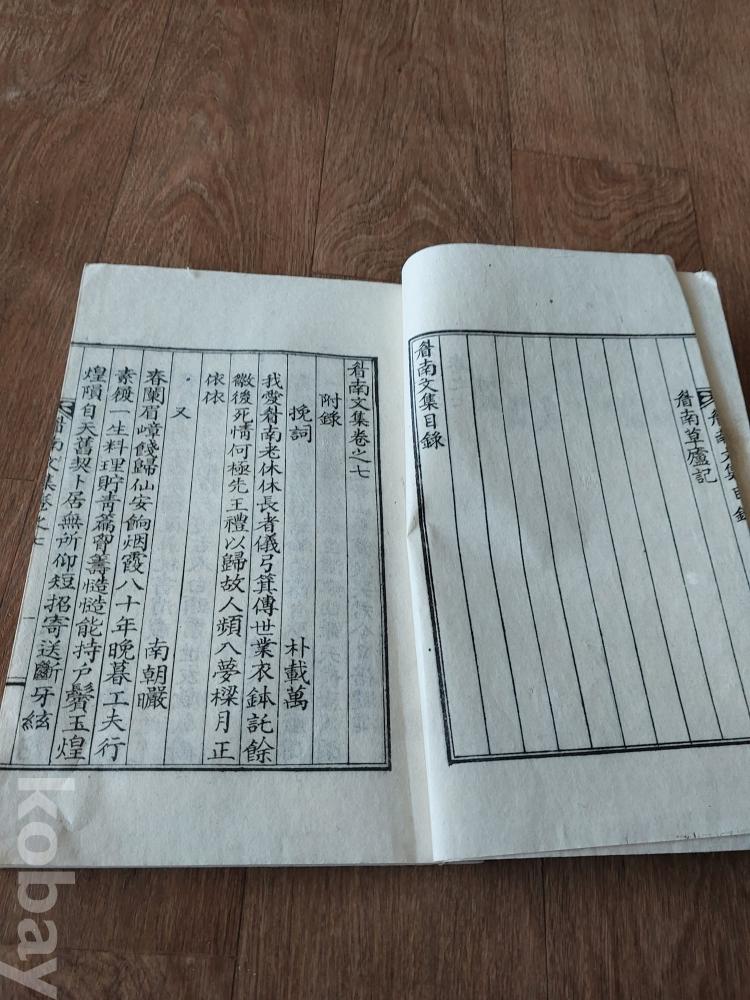 睂南文集目錄
睂南草廬記
睂南文集目錄
睂南文集卷之七
附錄
挽詞
朴載萬
我愛睂南老休休長者儀弓箕傳世業衣鉢託餘
徽後死情何極先王禮以歸故人頻入夢樑月正
依依
又
南朝巖
春闌眉嶂餞歸仙安餉烟霞八十年晚暮工夫行
素履一生料理貯靑篇胷籌慥慥能持户鬢玉煌
煌隕自天舊契卜居無所仰短招寄送斷牙絃
睂南文集卷之七
一
kobay